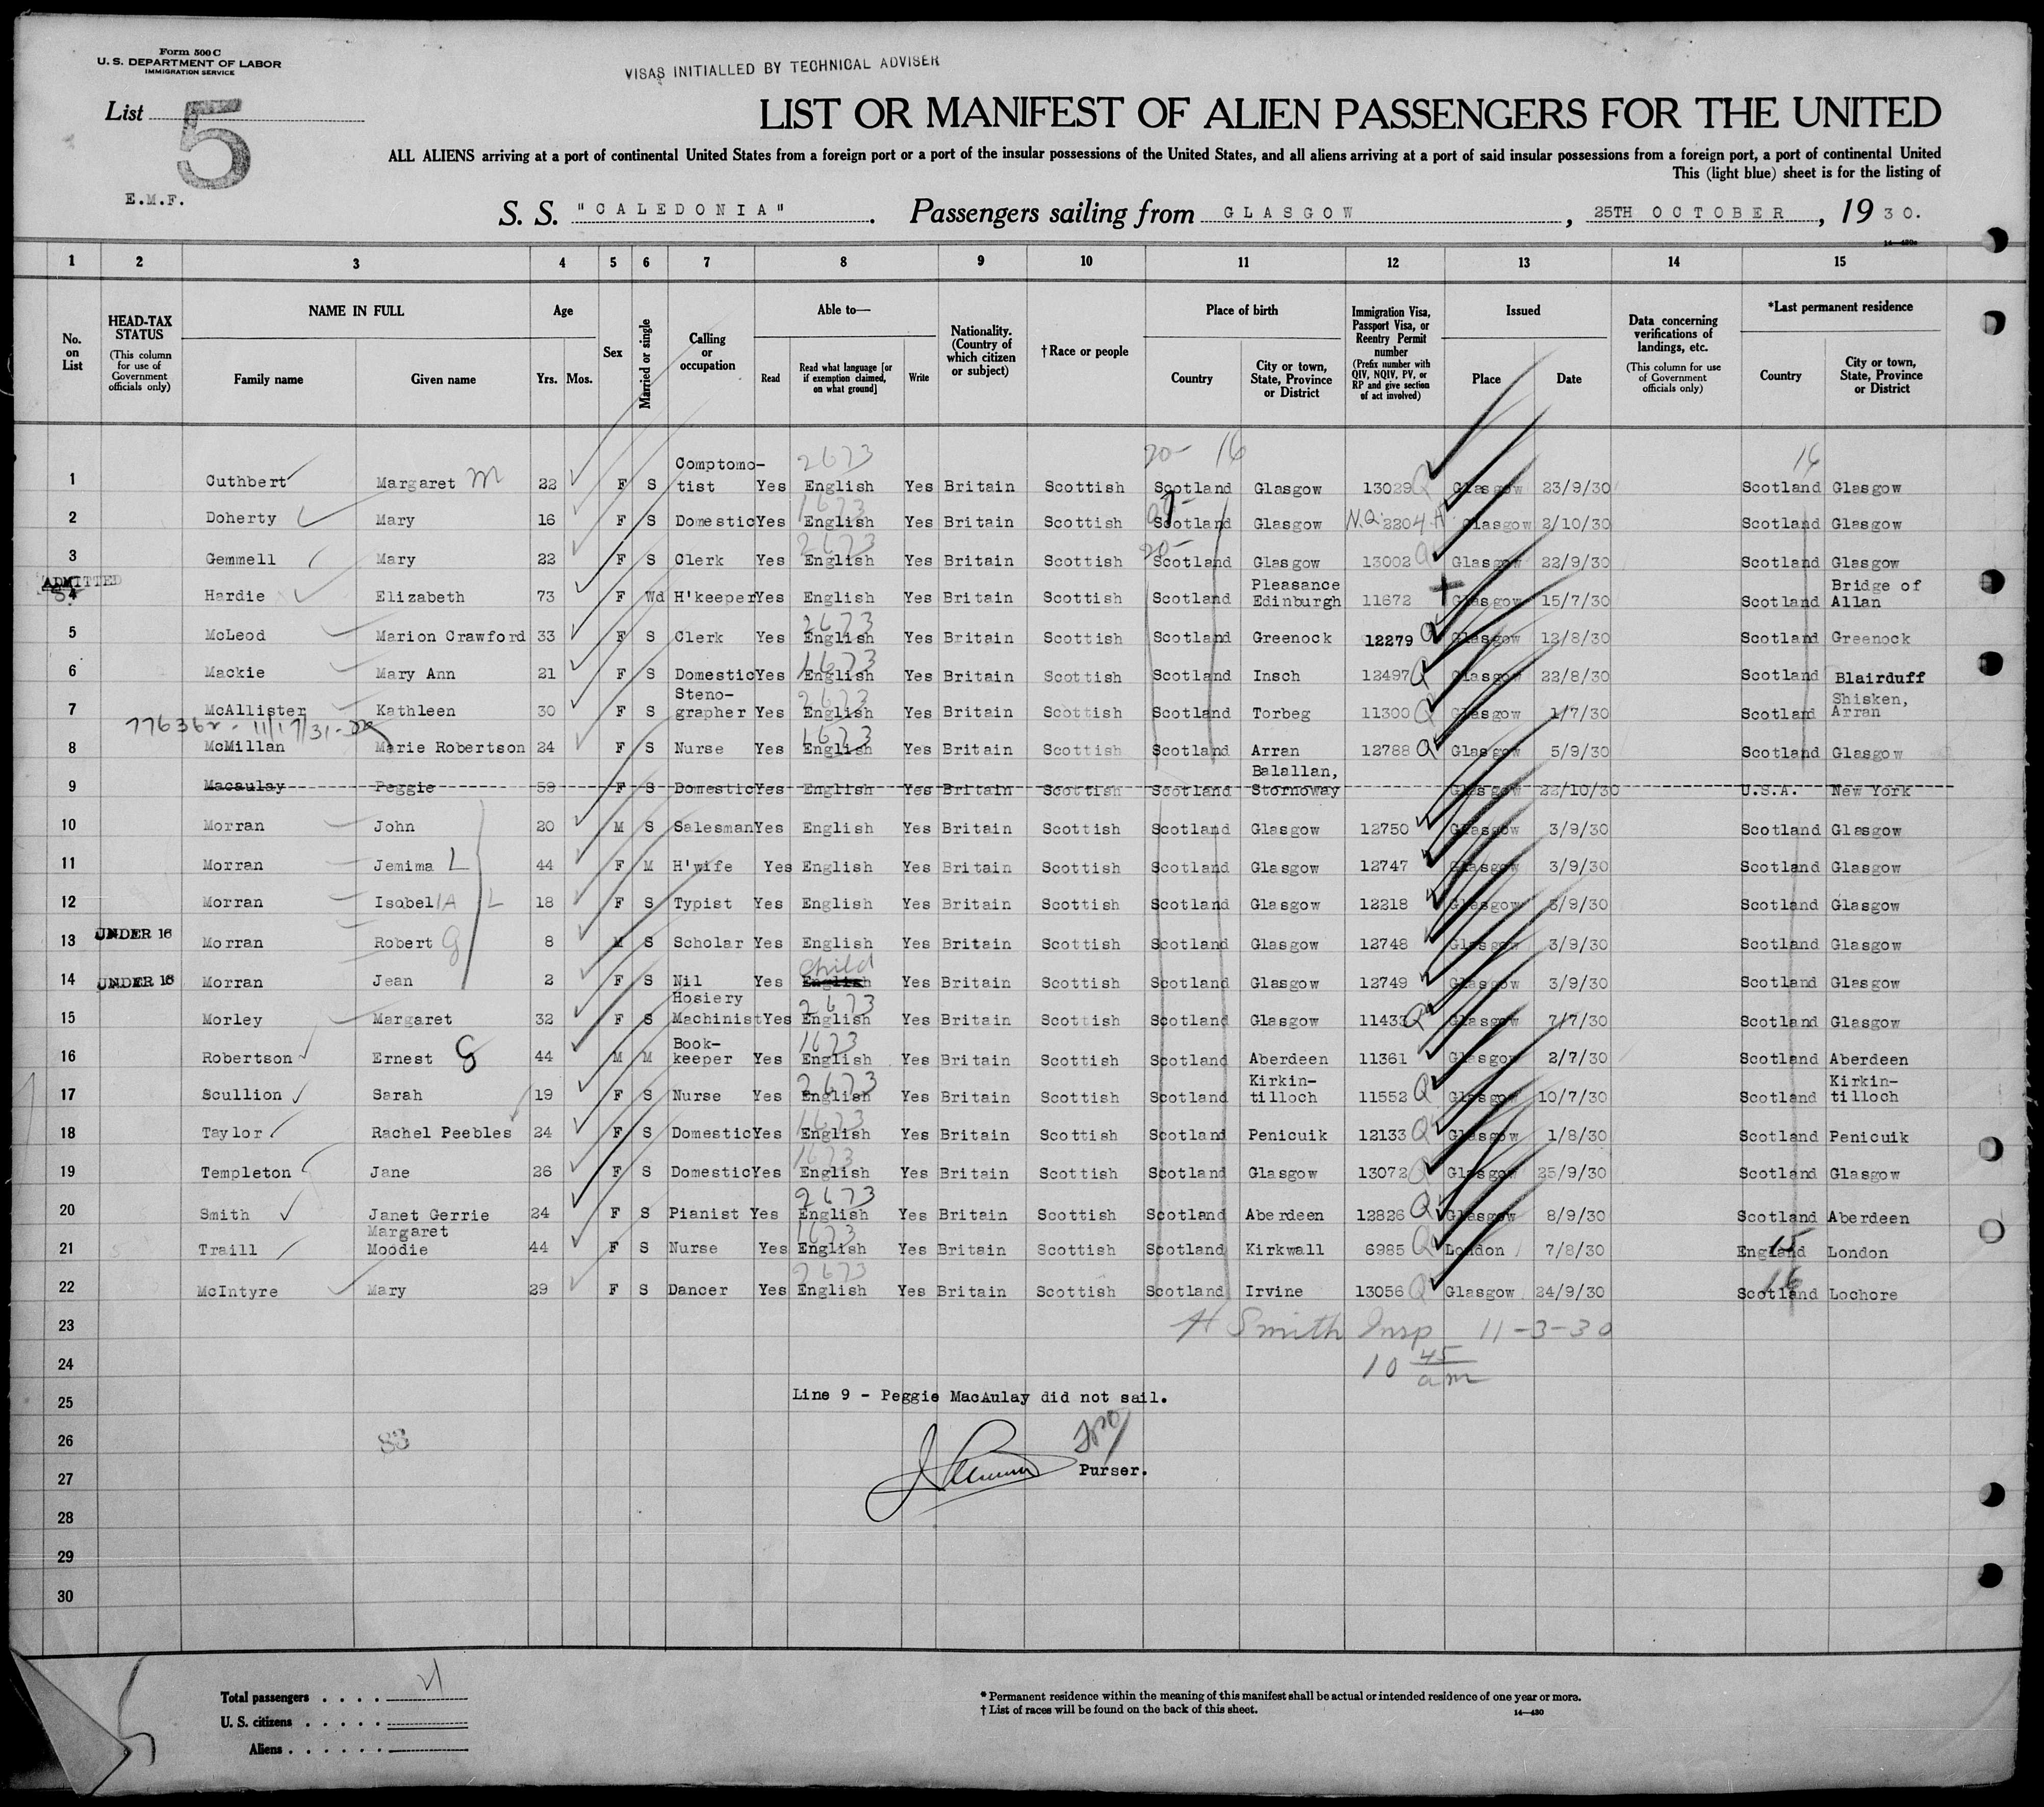 Form 500 C
U. S. DEPARTMENT OF LABOR
IMMIGRATION SERVICE
VISAS INITIALLED BY TECHNICAL ADVISER
List 5
LIST OR MANIFEST OF ALIEN PASSENGERS FOR THE UNITED
ALL ALIENS arriving at a port of continental United States from a foreign port or a port of the insular possessions of the United States, and all aliens arriving at a port of said insular possessions from a foreign port, a port of continental United
This (light blue) sheet is for the listing of
E.M.F.
S. S. "CALEDONIA". Passengers sailing from GLASGOW, 25TH OCTOBER, 1930.
14—430a
1 2 3 4 5 6 7 8 9 10 11 12 13 14 15
No. on List
HEAD-TAX STATUS (This column for use of Government officials only)
NAME IN FULL Family name Given name
Age Yrs. Mos.
Sex
Married or single
Calling or occupation
Able to— Read Read what language [or if exemption claimed, on what ground] Write
Nationality. (Country of which citizen or subject)
†Race or people
Place of birth Country City or town, State, Province or District
Immigration Visa, Passport Visa, or Reentry Permit number (Prefix number with QIV, NQIV, PV, or RP and give section of act involved)
Issued Place Date
Data concerning verifications of landings, etc. (This column for use of Government officials only)
*Last permanent residence Country City or town, State, Province or District
2673 20- 16 16
1 Cuthbert Margaret M 22 F S Comptomo-tist Yes English Yes Britain Scottish Scotland Glasgow 13029 Q Glasgow 23/9/30 Scotland Glasgow
1673
2 Doherty Mary 16 F S Domestic Yes English Yes Britain Scottish Scotland Glasgow N.Q. 2204 Glasgow 2/10/30 Scotland Glasgow
2673 20-
3 Gemmell Mary 22 F S Clerk Yes English Yes Britain Scottish Scotland Glasgow 13002 Q Glasgow 22/9/30 Scotland Glasgow
ADMITTED
4 Hardie Elizabeth 73 F Wd H'keeper Yes English Yes Britain Scottish Scotland Pleasance Edinburgh 11672 Glasgow 15/7/30 Scotland Bridge of Allan
2673
5 McLeod Marion Crawford 33 F S Clerk Yes English Yes Britain Scottish Scotland Greenock 12279 Q Glasgow 12/8/30 Scotland Greenock
1673
6 Mackie Mary Ann 21 F S Domestic Yes English Yes Britain Scottish Scotland Insch 12497 Q Glasgow 22/8/30 Scotland Blairduff
2673
7 McAllister Kathleen 30 F S Steno-grapher Yes English Yes Britain Scottish Scotland Torbeg 11300 Q Glasgow 1/7/30 Scotland Shisken, Arran
11/17/31 1673
8 McMillan Marie Robertson 24 F S Nurse Yes English Yes Britain Scottish Scotland Arran 12788 Q Glasgow 5/9/30 Scotland Glasgow
9 Macaulay Peggie 59 F S Domestic Yes English Yes Britain Scottish Scotland Balallan, Stornoway Glasgow 22/10/30 U.S.A. New York
10 Morran John 20 M S Salesman Yes English Yes Britain Scottish Scotland Glasgow 12750 Glasgow 3/9/30 Scotland Glasgow
11 Morran Jemima L 44 F M H'wife Yes English Yes Britain Scottish Scotland Glasgow 12747 Glasgow 3/9/30 Scotland Glasgow
12 Morran Isobel/A L 18 F S Typist Yes English Yes Britain Scottish Scotland Glasgow 12218 Glasgow 3/9/30 Scotland Glasgow
13 UNDER 16 Morran Robert G 8 M S Scholar Yes English Yes Britain Scottish Scotland Glasgow 12748 Glasgow 3/9/30 Scotland Glasgow
child
14 UNDER 16 Morran Jean 2 F S Nil Yes English Yes Britain Scottish Scotland Glasgow 12749 Glasgow 3/9/30 Scotland Glasgow
2673
15 Morley Margaret 32 F S Hosiery Machinist Yes English Yes Britain Scottish Scotland Glasgow 11433 Q Glasgow 7/7/30 Scotland Glasgow
1673
16 Robertson Ernest G 44 M M Book-keeper Yes English Yes Britain Scottish Scotland Aberdeen 11361 Glasgow 2/7/30 Scotland Aberdeen
2673
17 Scullion Sarah 19 F S Nurse Yes English Yes Britain Scottish Scotland Kirkin-tilloch 11552 Q Glasgow 10/7/30 Scotland Kirkin-tilloch
1673
18 Taylor Rachel Peebles 24 F S Domestic Yes English Yes Britain Scottish Scotland Penicuik 12133 Q Glasgow 1/8/30 Scotland Penicuik
1673
19 Templeton Jane 26 F S Domestic Yes English Yes Britain Scottish Scotland Glasgow 13072 Q Glasgow 25/9/30 Scotland Glasgow
2673
20 Smith Janet Gerrie 24 F S Pianist Yes English Yes Britain Scottish Scotland Aberdeen 12826 Q Glasgow 8/9/30 Scotland Aberdeen
1673 15
21 Traill Margaret Moodie 44 F S Nurse Yes English Yes Britain Scottish Scotland Kirkwall 6985 Q London 7/8/30 England London
2673 16
22 McIntyre Mary 29 F S Dancer Yes English Yes Britain Scottish Scotland Irvine 13056 Q Glasgow 24/9/30 Scotland Lochore
23 H Smith Insp 11-3-30
24 10 45 am
25 Line 9 - Peggie MacAulay did not sail.
26 83
27 Purser.
28
29
30
Total passengers . . . . 21
U. S. citizens . . . . .
Aliens . . . . . .
* Permanent residence within the meaning of this manifest shall be actual or intended residence of one year or more.
† List of races will be found on the back of this sheet.
14—430